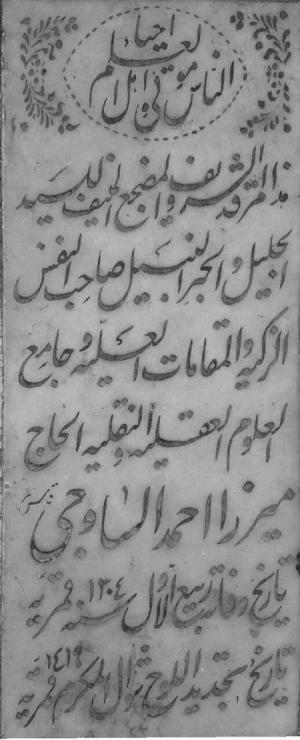 الناس موتی و اهل العلم احیاء
هذا المرقد الشریف و المضجع المنیف للسید
الجلیل و الحبر النبیل صاحب النفس
الزکیه و المقامات العلیه و جامع
العلوم العقلیه و النقلیه الحاج
میرزا احمد الساوجی قدس سره
تاریخ وفات ربیع الاول سنه ۱۳۰۴ قمریه
تاریخ تجدید اللوح شوال المکرم ۱۴۱۹ قمریه